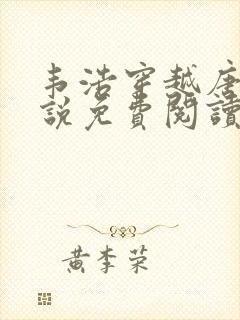 韦浩穿越唐
說免費閱讀
黄李荣